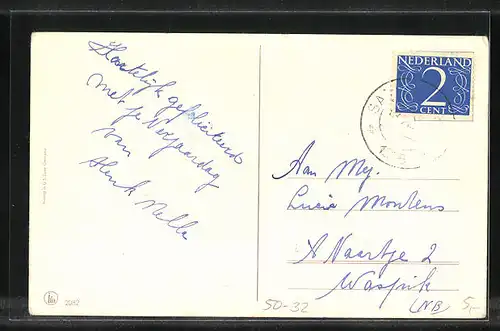 Hartelijk gefeliciteerd
met je Verjaardag
van
Henk Nella
NEDERLAND
2
CENT
SA
Aan Mej.
Lucia Montens
't Vaartje 2
Waspik
(NB)
5,-
50-32
2082